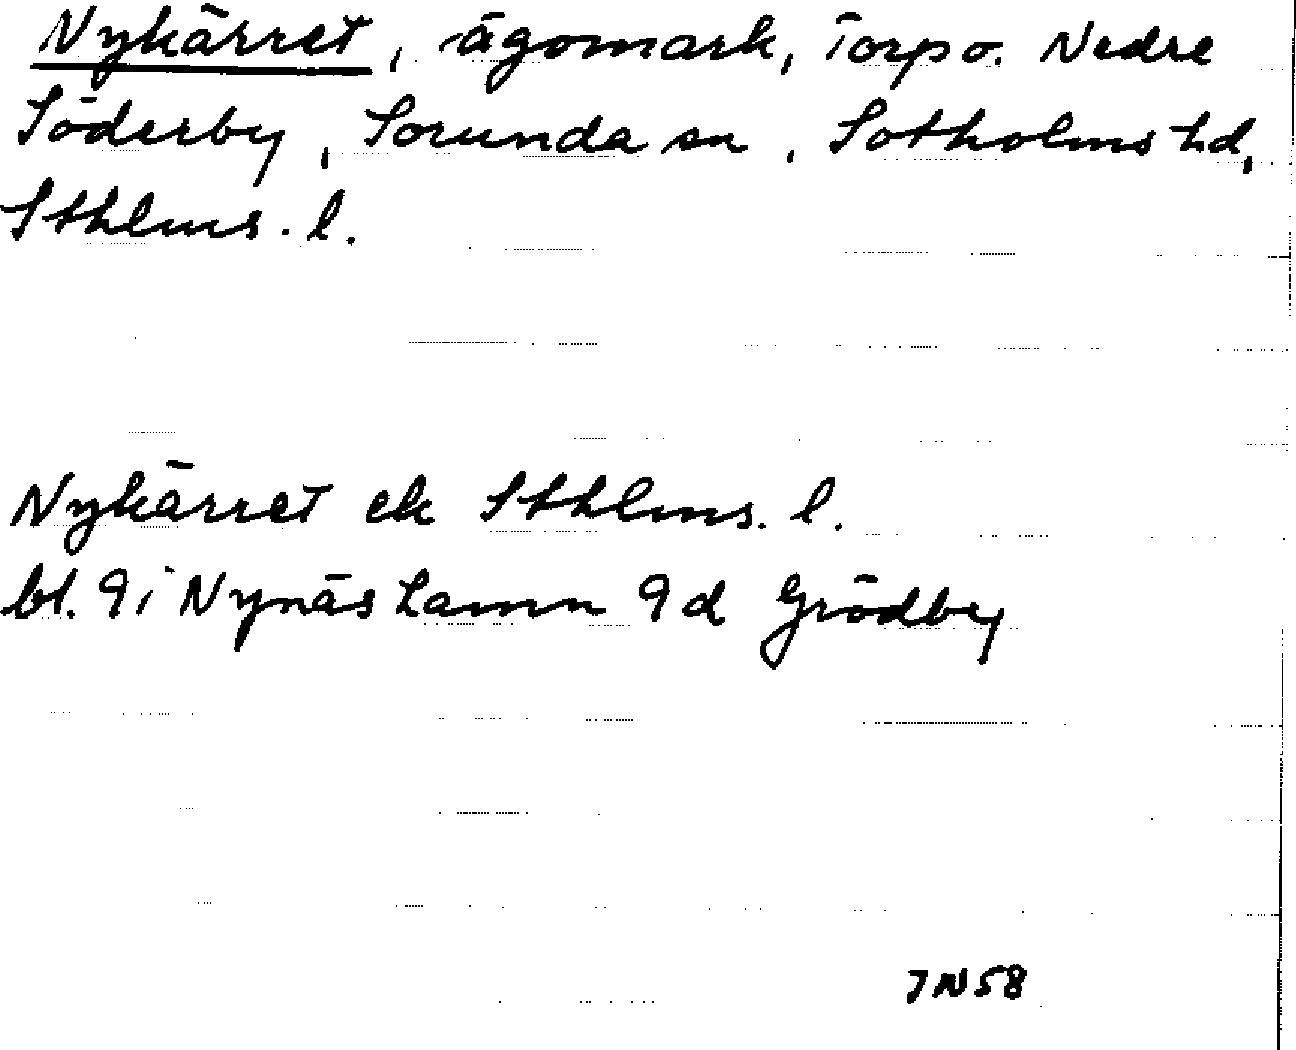 Nykärret, ägomark, Torpo. Nedre
Söderby, Sorunda sn, Sotholms hd,
Sthlms. l.
Nykärret ek Sthlms. l.
bl. 9 i Nynäshamn 9d Grödby
JN58